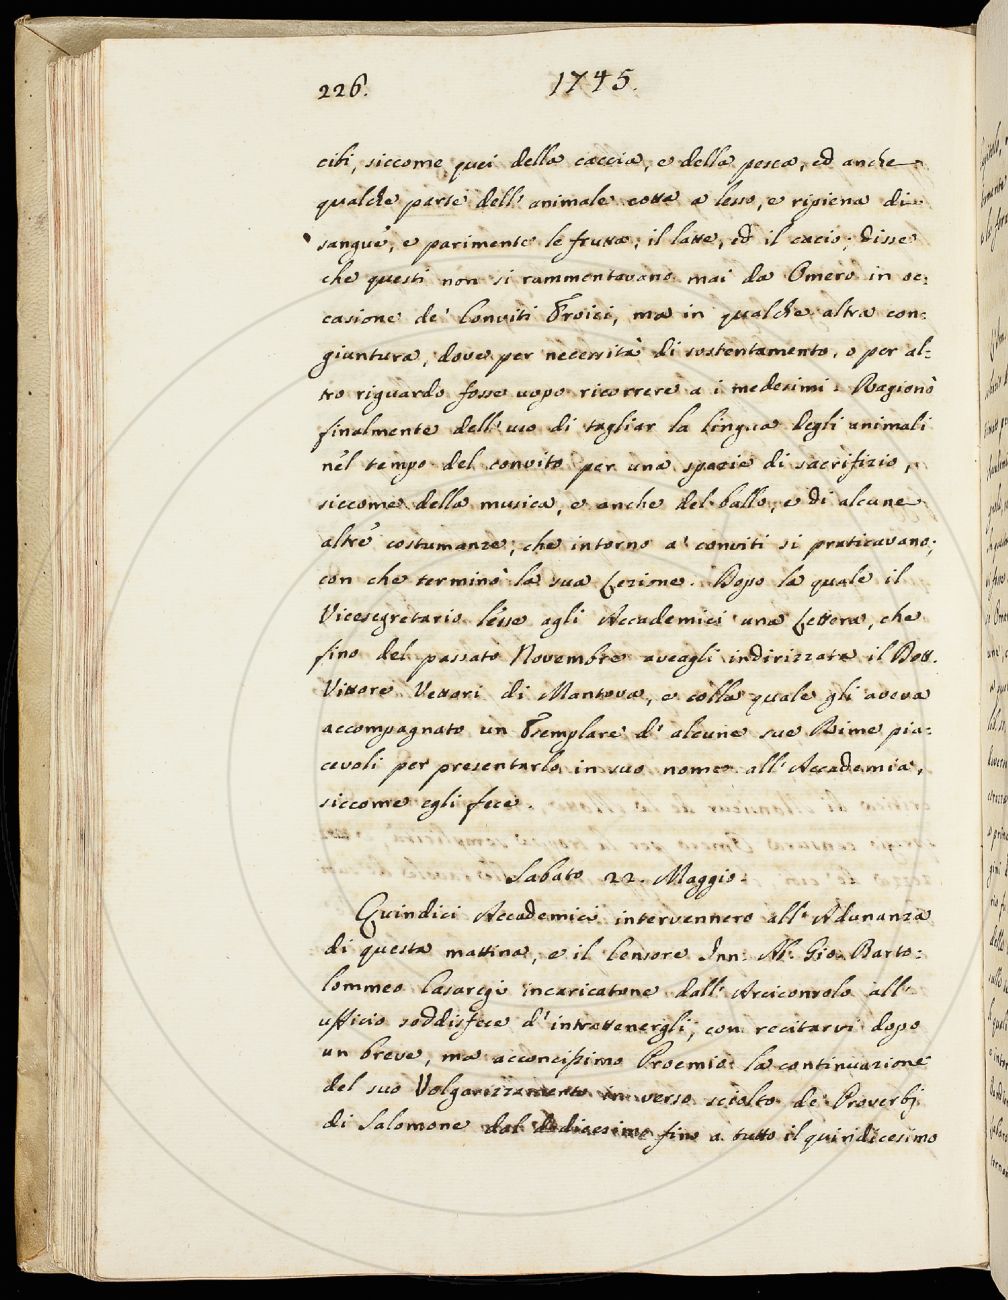 226.
1745.
cibi, siccome quei della caccia, e della pesca, ed anche
qualche parte dell' animale cotta a lesso, e ripiena di
sangue, e parimente le frutta, il latte, ed il cacio; disse
che questi non si rammentavano mai da Omero in oc:
casione de' Conviti Troici, ma in qualche altra con:
giuntura, dove per necessità di sostentamento, o per al:
tro riguardo fosse uopo ricorrere a i medesimi. Ragionò
finalmente dell' uso di tagliar la Lingua degli animali
nel tempo del convito per una spezie di sacrifizio,
siccome della musica, e anche del ballo, e di alcune
altre costumanze, che intorno a' conviti si praticavano;
con che terminò la sua Lezione. Dopo la quale il
Vicesegretario lesse agli Accademici una Lettera, che
fino del passato Novembre aveagli indirizzata il Dott.
Vittore Vettori di Mantova, e colla quale gli aveva
accompagnato un Esemplare d' alcune sue Rime pia:
cevoli per presentarlo in suo nome all' Accademia,
siccome egli fece.
Sabato 22. Maggio.
Quindici Accademici intervennero all' Adunanza
di questa mattina, e il Censore Inn: Ab: Gio: Barto:
lommeo Casaregi incaricatone dall' Arciconsolo all'
ufficio soddisfece d' intrattenergli, con recitarvi dopo
un breve, ma acconcissimo Proemio la continuazione
del suo Volgarizzamento in verso sciolto de' Proverbj
di Salomone dal dodicesimo fino a tutto il quindicesimo